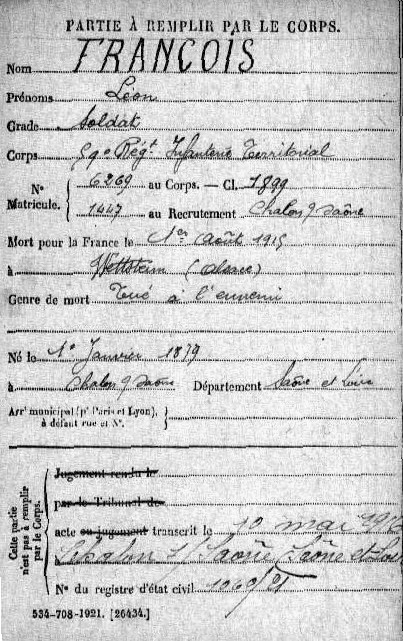 PARTIE À REMPLIR PAR LE CORPS.
Nom FRANÇOIS
Prénoms Léon
Grade Soldat
Corps 59e Régt Infanterie Territorial
N° Matricule. 6269 au Corps. — Cl. 1899
1447 au Recrutement Chalon s/ Saône
Mort pour la France le 1er Août 1915
à Wettstein (Alsace)
Genre de mort Tué à l'ennemi
Né le 1er Janvier 1879
à Chalon s/ Saône Département Saône et Loire
Arrt municipal (pr Paris et Lyon),
à défaut rue et N°.
Cette partie n'est pas à remplir par le Corps.
Jugement rendu le
par le Tribunal de
acte ou jugement transcrit le 10 mai 1916
Chalon s/ Saône, Saône et Loire
N° du registre d'état civil 1060/
534-708-1921. [26434.]